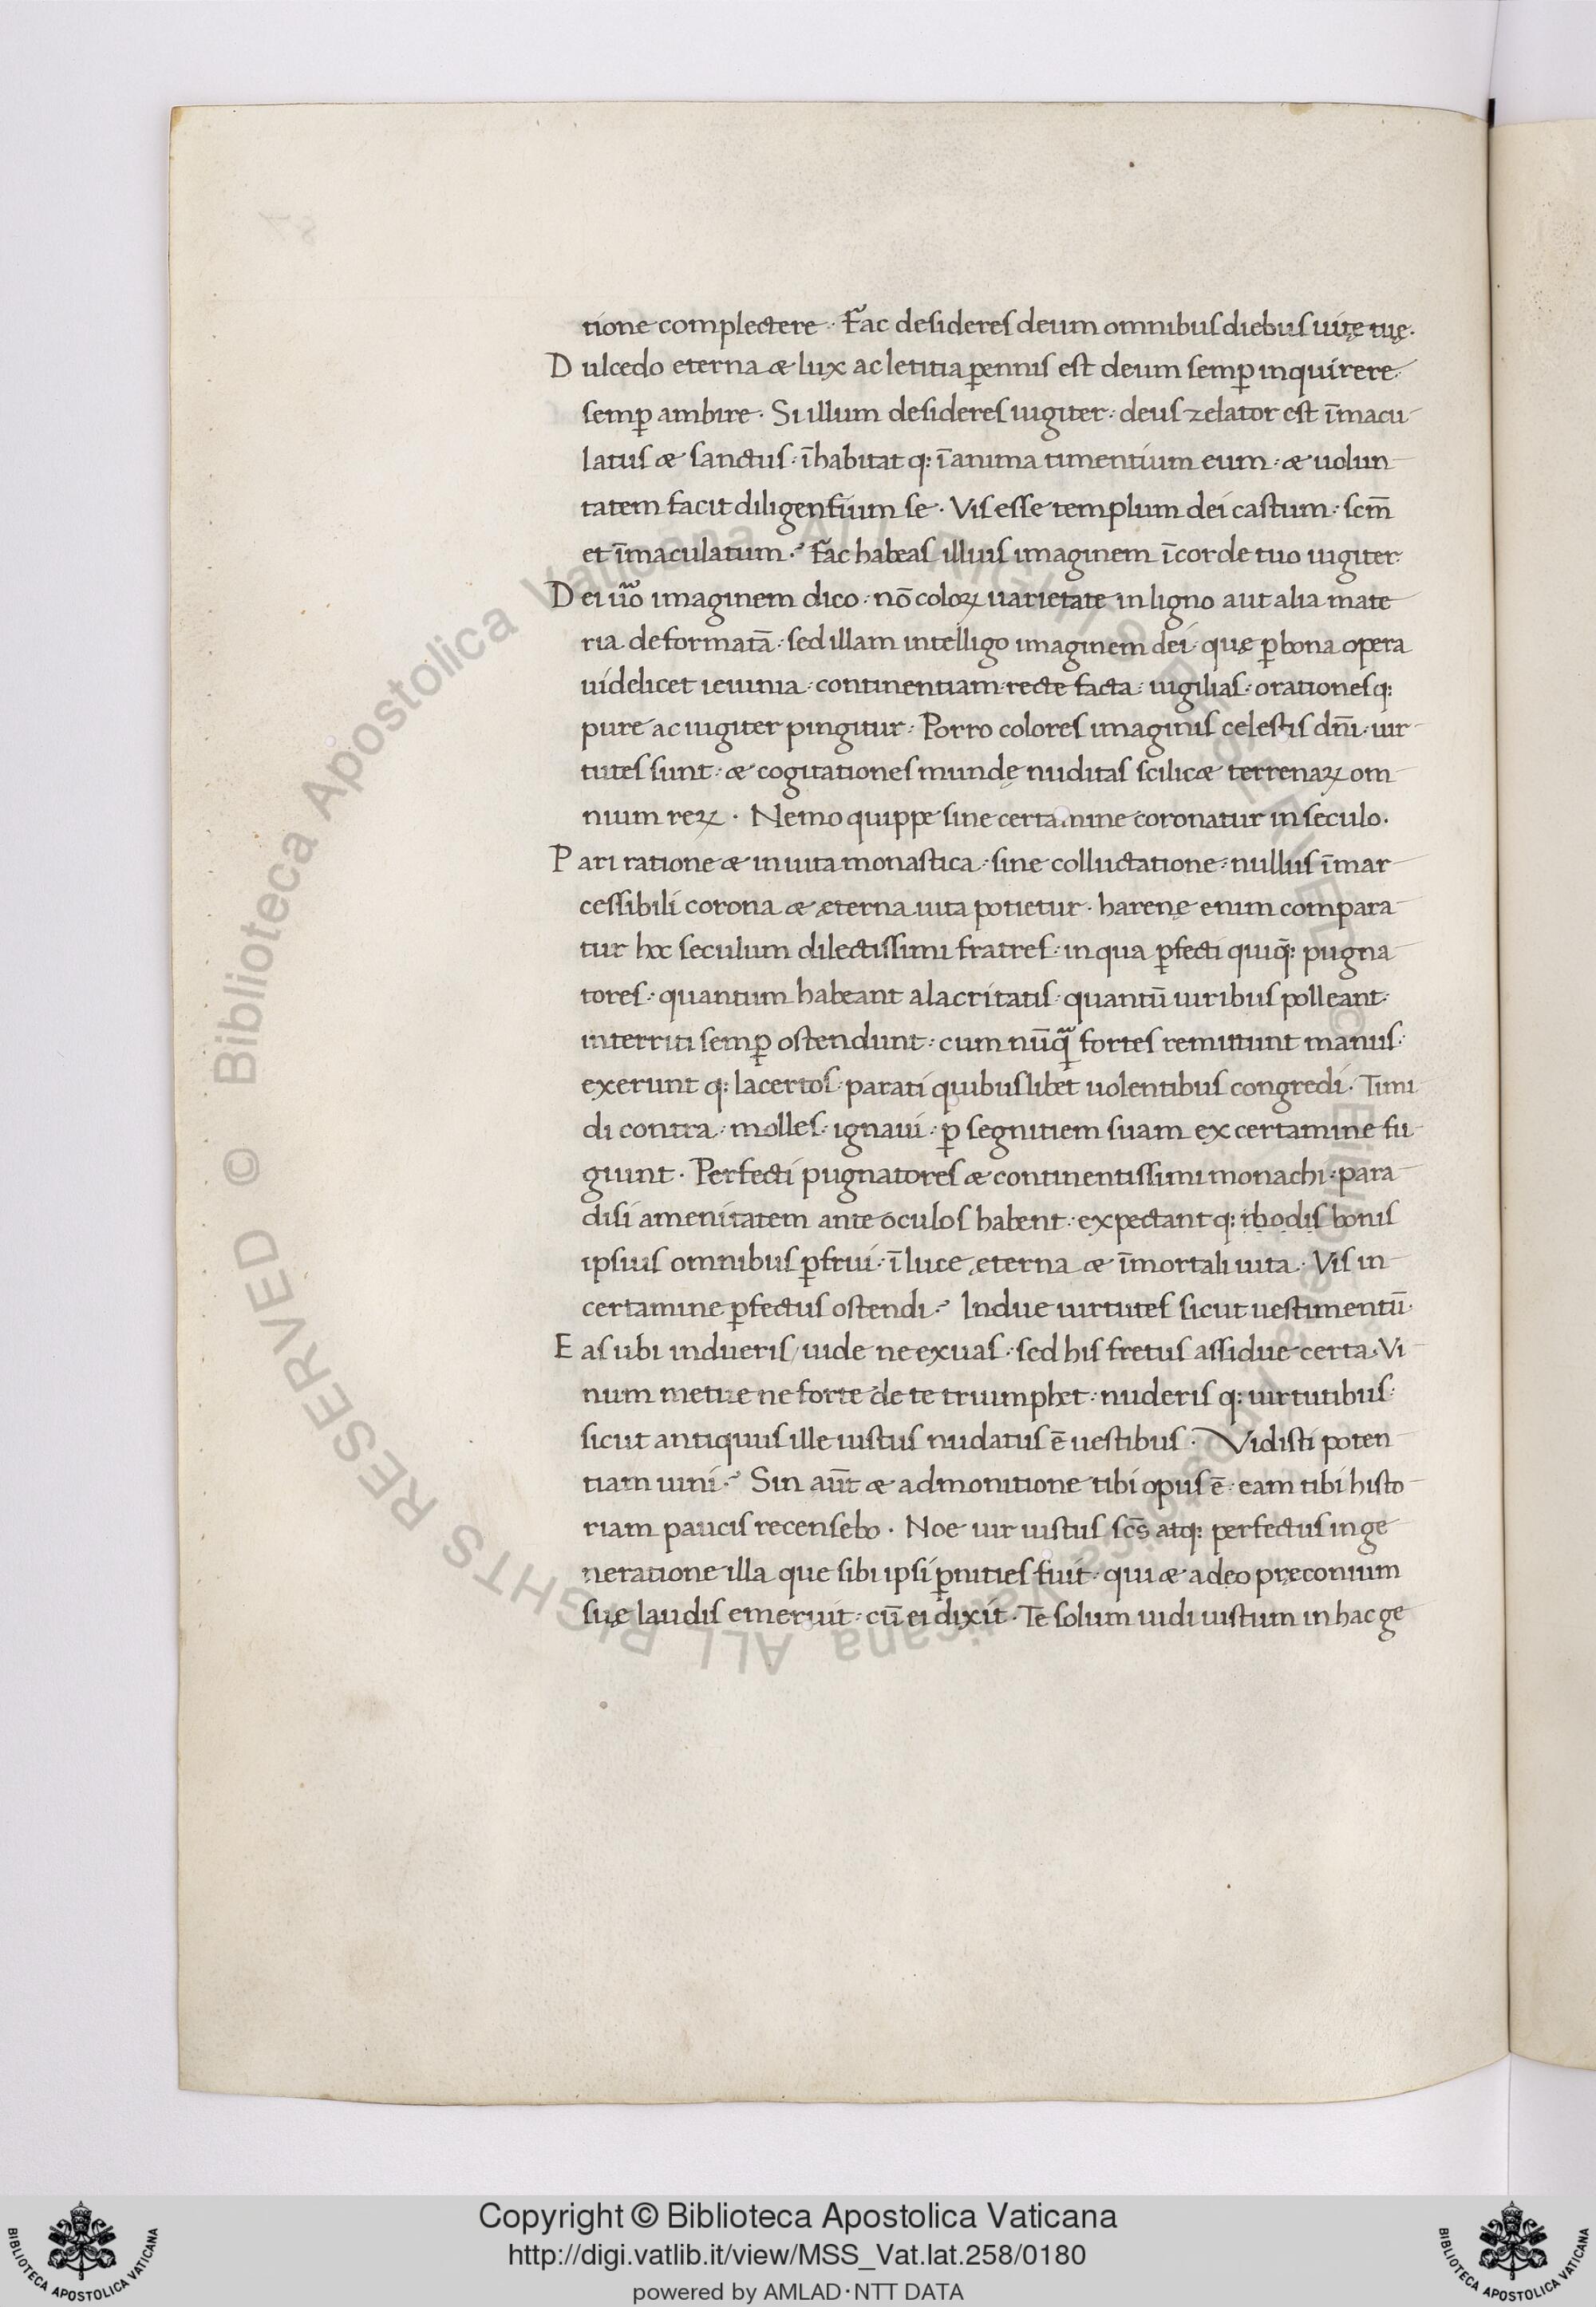 tione complectere · Fac desideres deum omnibus diebus uitę tuę·
Dulcedo eterna & lux ac letitia ꝑennis est deum semꝑ inquirere·
semꝑ ambire · Si illum desideres iugiter · deus zelator est īmacu
latus & sanctus · īhabitat q: ī anima timentium eum · & uolun
tatem facit diligentium se · Vis esse templum dei castum · scm̄
et īmaculatum · Fac habeas illius imaginem ī corde tuo iugiter·
Dei u͞o imaginem dico · nō coloꝝ uarietate in ligno aut alia mate
ria deformatā · sed illam intelligo imaginem dei · quę ꝑ bona opera
uidelicet ieiunia · continentiam · recte facta · uigilias · orationesq:
pure ac iugiter pingitur · Porro colores imaginis celestis dn̄i · uir
tutes sunt · & cogitationes mundę nuditas scilic& terrenaꝝ om
nium reꝝ · Nemo quippe sine certamine coronatur in seculo·
Pari ratione & in uita monastica · sine colluctatione · nullus īmar
cessibili corona & ęterna uita potietur · harenę enim compara
tur hoc seculum dilectissimi fratres · in qua ꝑfecti quiq̄: pugna
tores · quantum habeant alacritatis · quantū uiribus polleant·
interriti semꝑ ostendunt · cum nūq̃ fortes remittunt manus·
exerunt q: lacertos · parati quibuslibet uolentibus congredi · Timi
di contra · molles · ignaui · ꝑ segnitiem suam ex certamine fu
giunt · Perfecti pugnatores & continentissimi monachi · para
disi amenitatem ante oculos habent · expectant q: rhodis bonis
ipsius omnibus ꝑfrui · ī luce ęterna & īmortali uita · Vis in
certamine ꝑfectus ostendi · Indue uirtutes sicut uestimentū·
Eas ubi indueris / uide ne exuas · sed his fretus assidue certa · Vi
num metue ne forte de te triumphet · nuderis q: uirtutibus·
sicut antiquus ille iustus nudatus ē uestibus · Vidisti poten
tiam uini · Sin aūt & admonitione tibi opus ē · eam tibi histo
riam paucis recensebo · Noe uir iustus sc̄s atq: perfectus in ge
neratione illa que sibi ipsi ꝑnities fuit · qui & adeo pręconium
suę laudis emeruit · cū ei dixit · Te solum uidi iustum in hac ge
© Biblioteca Apostolica Vaticana ALL RIGHTS RESERVED © Biblioteca Apostolica Vaticana ALL RIGHTS RESERVED
Copyright © Biblioteca Apostolica Vaticana
http://digi.vatlib.it/view/MSS_Vat.lat.258/0180
powered by AMLAD·NTT DATA
BIBLIOTECA APOSTOLICA VATICANA
BIBLIOTECA APOSTOLICA VATICANA